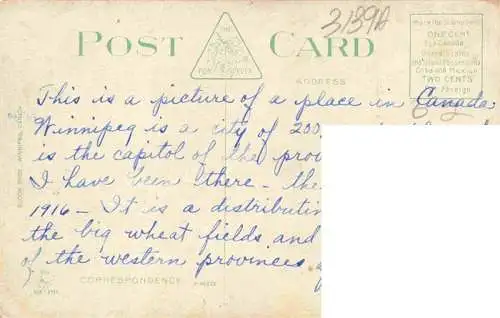 3139A
POST CARD
ADDRESS
Place for Stamp
ONE CENT
For Canada
United States
Cuba and Mexico
TWO CENTS
Foreign
This is a picture of a place in Canada,
Winnipeg is a city of 200,
is the capitol of the prov
I have been there - the
1916 - It is a distributin
the big wheat fields and
of the western provinces.
CORRESPONDENCE